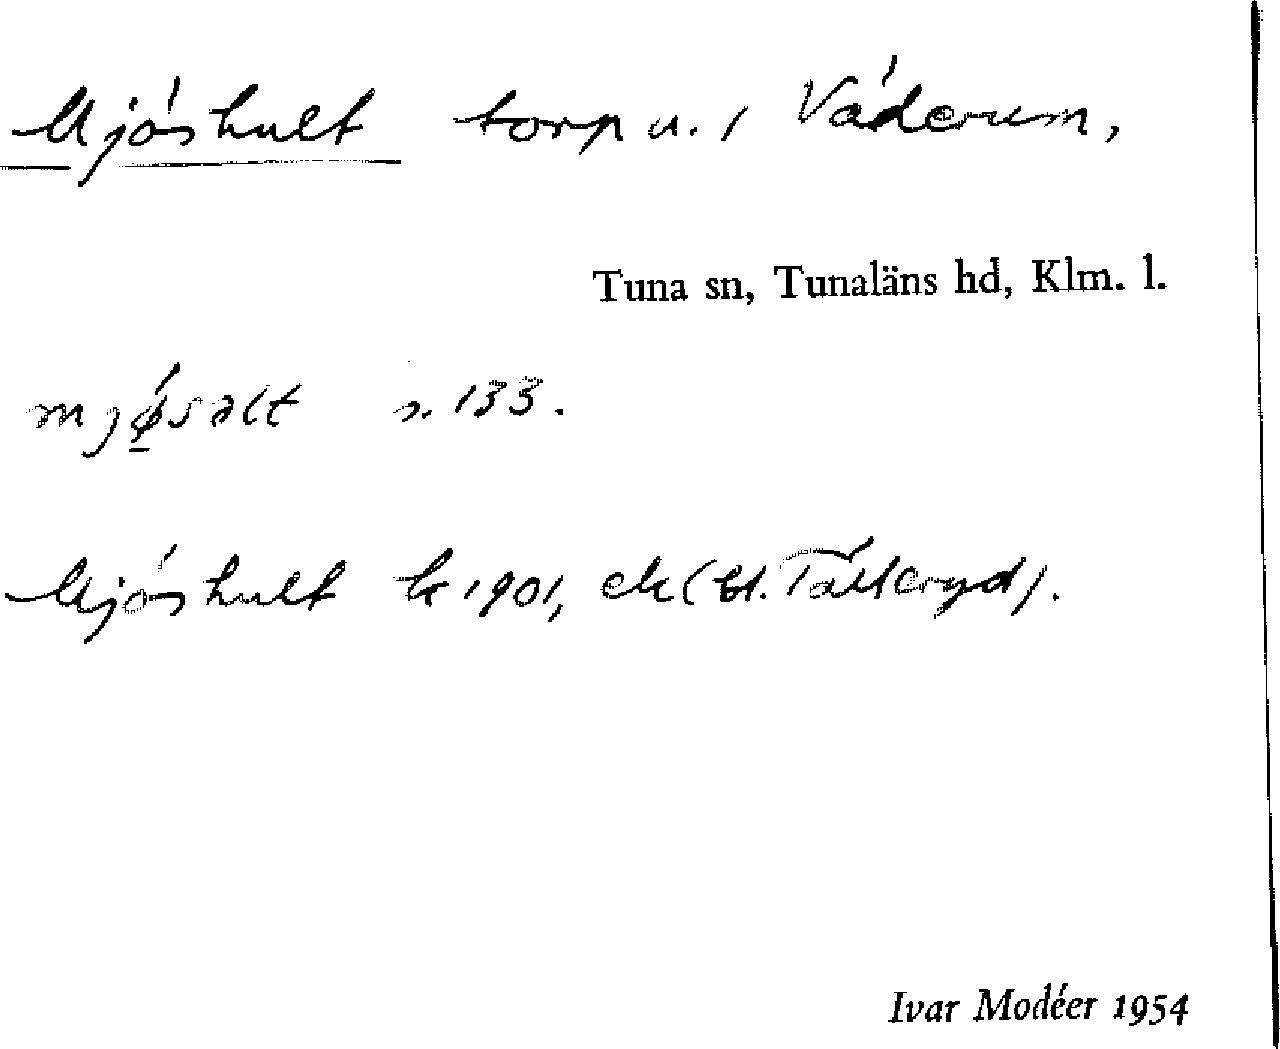 Mjöshult torp u. 1 Väderum,
Tuna sn, Tunaläns hd, Klm. l.
mjǿsəlt s. 133.
Mjöshult k 1901, ek (bl. Tälleryd).
Ivar Modéer 1954